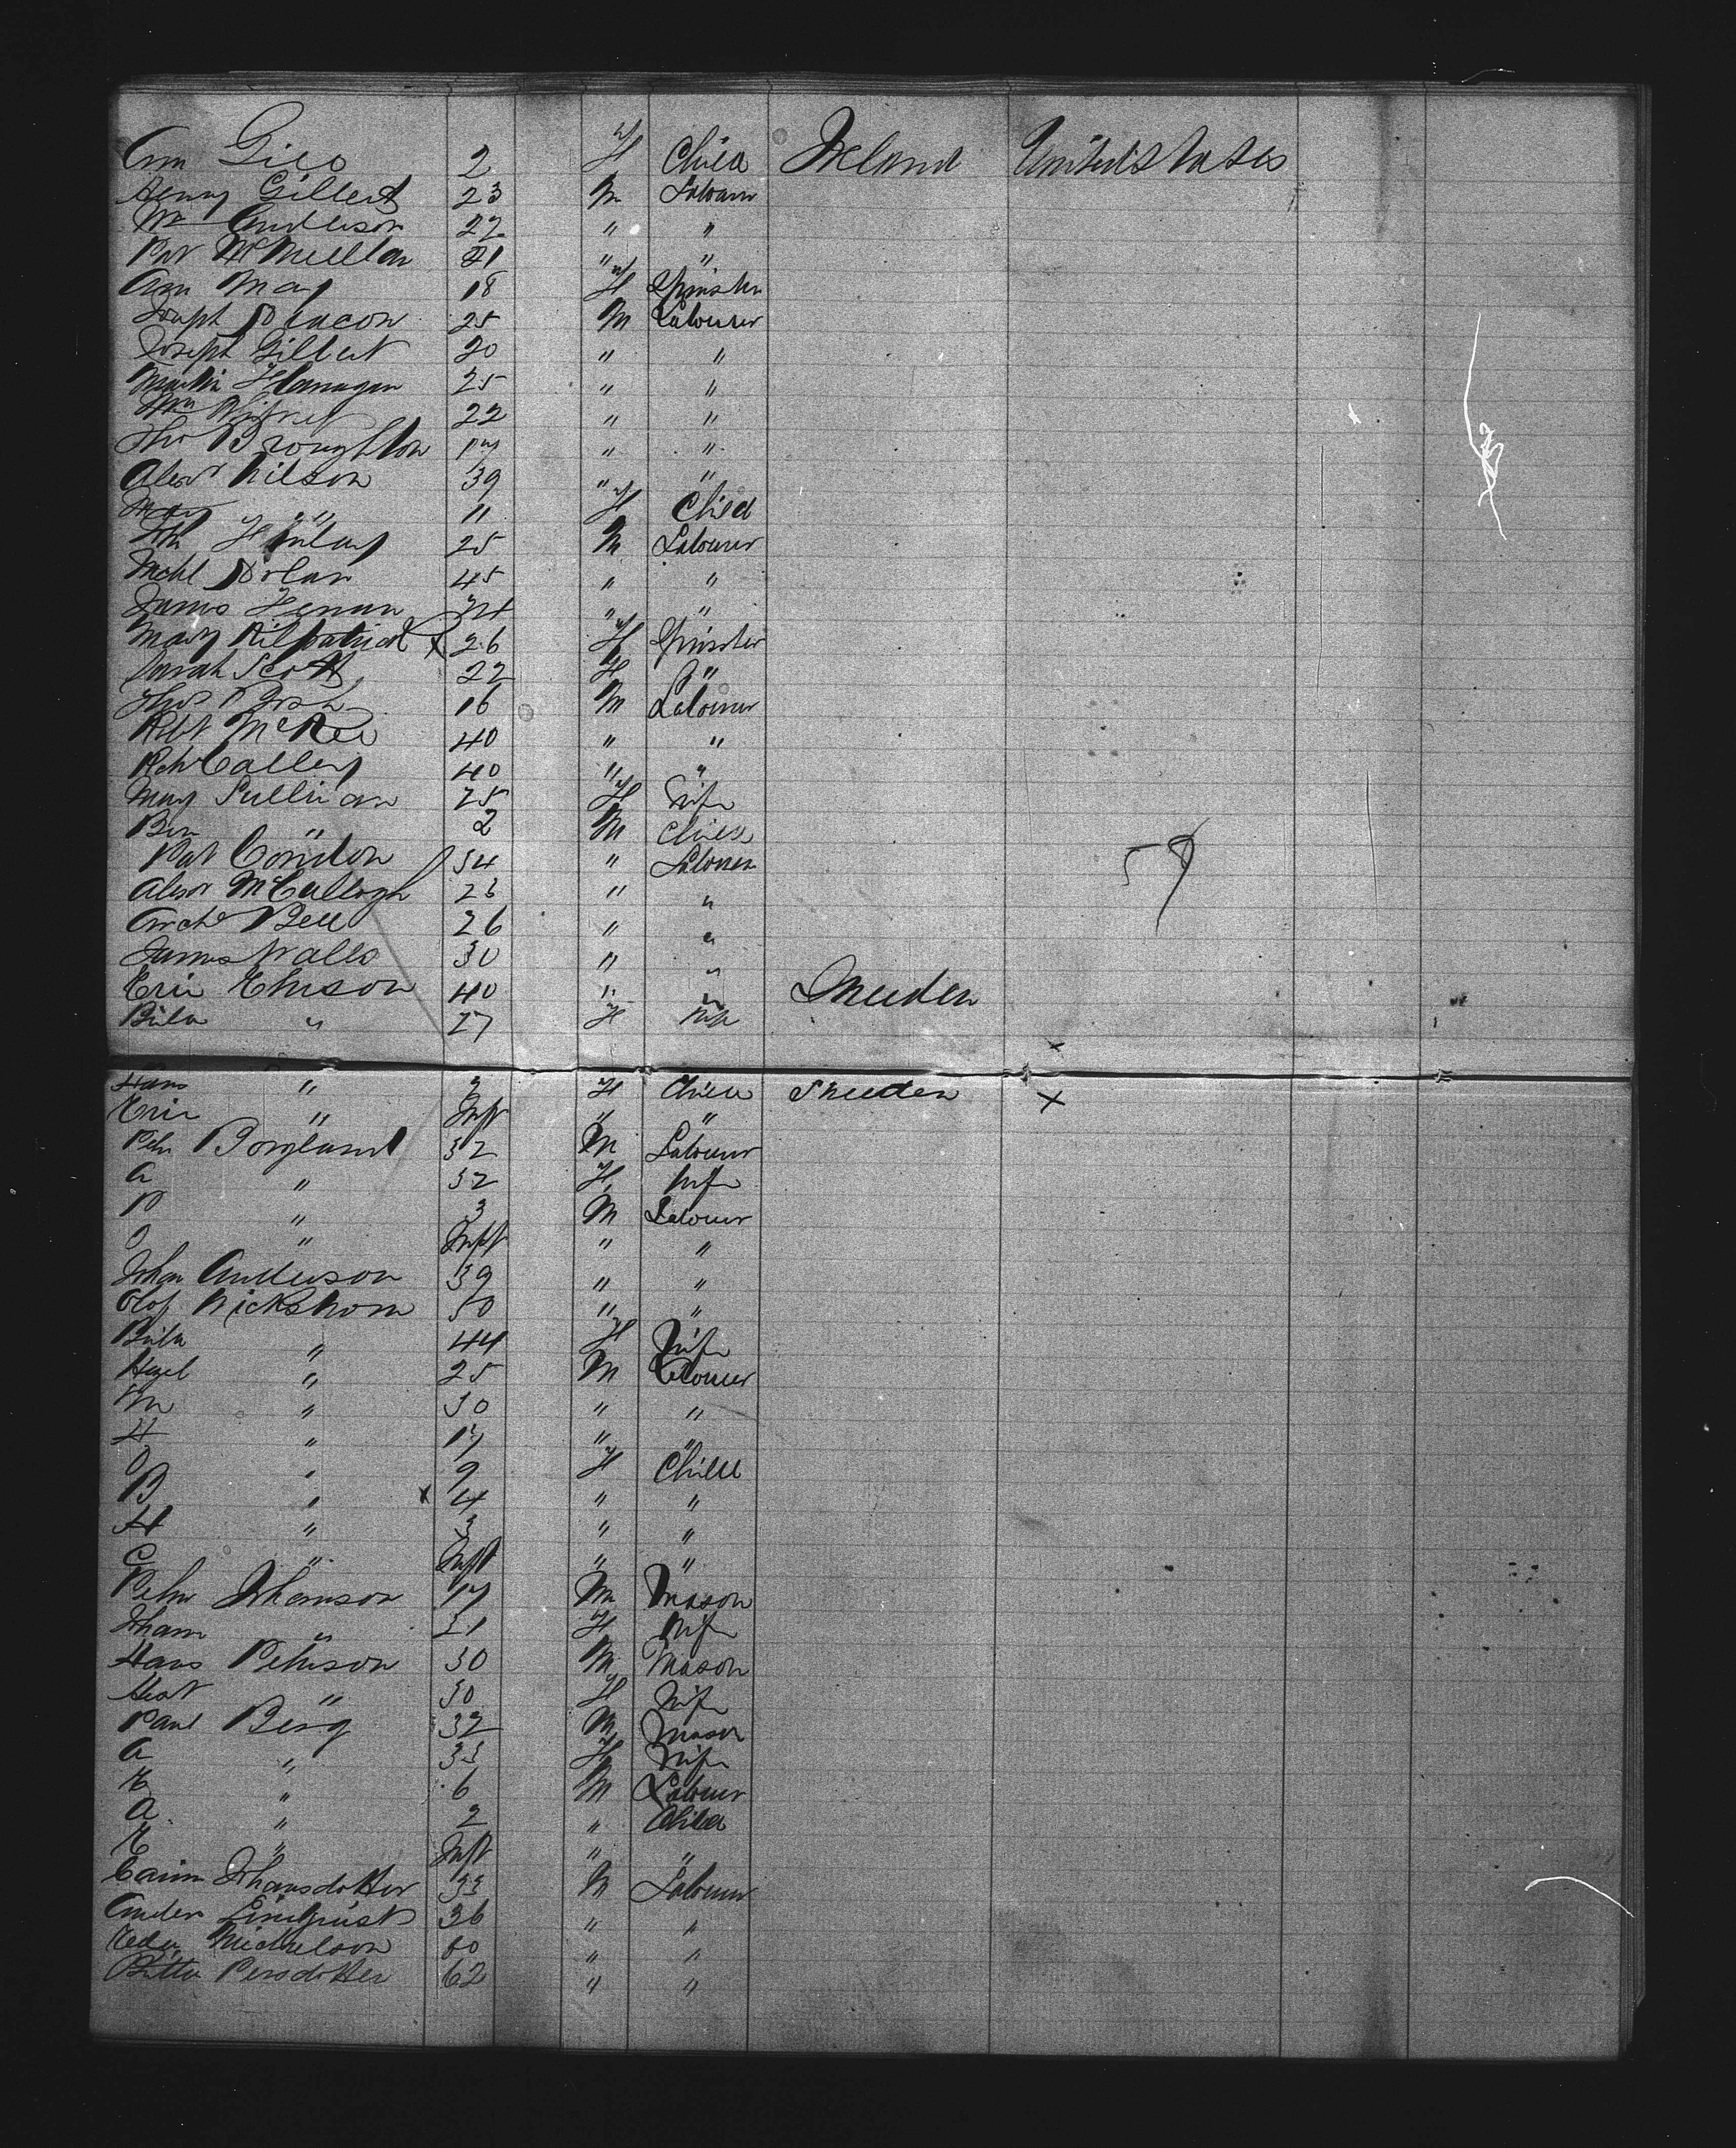 Ann Gill 2 F Child Ireland United States
Henry Gilbert 23 M Labourer
Wm Anderson 22 " "
Pat McMullan 21 " "
Ann May 18 F Spinster
Joseph Deacon 25 M Labourer
Joseph Gilbert 20 " "
Martin Flanagan 25 " "
Wm 22 " "
Thos Broughton 17 " "
Alexr Wilson 39 " "
Mary " 11 F Child
Jno Finlay 25 M Labourer
Mchl Dolan 45 " "
James Henan 24 " "
Mary Kilpatrick x 26 F Spinster
Sarah Scott 22 F "
Thos 16 M Labourer
Robt McKee 40 " "
Callery 40 " "
Mary Sullivan 25 F Wife
Ben " 2 M Child
Pat Condon 34 " Labourer
59
Alexr McCullogh 23 " "
Archd Bell 26 " "
James Walls 30 " "
Eric Ehrson 40 " " Sweden
Brita " 27 F Wife
x
Hans " 3 F Child Sweden x
Eric " Inft " "
Pehr Borglund 32 M Labourer
A " 32 F Wife
P " 3 M Labourer
O " Inft " "
Johan Anderson 39 " "
Olof Wickstrom 50 " "
Brita " 44 F Wife
" 25 M Labourer
M " 30 " "
H " 17 " "
O " 9 F Child
B " x 4 " "
H " 3 " "
C " Inft " "
Pehr Johanson 17 M Mason
Johan " 31 F Wife
Hans Pehrson 30 M Mason
" 30 F Wife
Paul Berg 32 M Mason
A " 33 F Wife
E " 6 M Labourer
A " 2 " Child
E " Inft " "
Carin Johansdotter 33 M Labourer
Ander Lindquist 36 " "
Michelson 60 " "
Britta Persdotter 62 " "